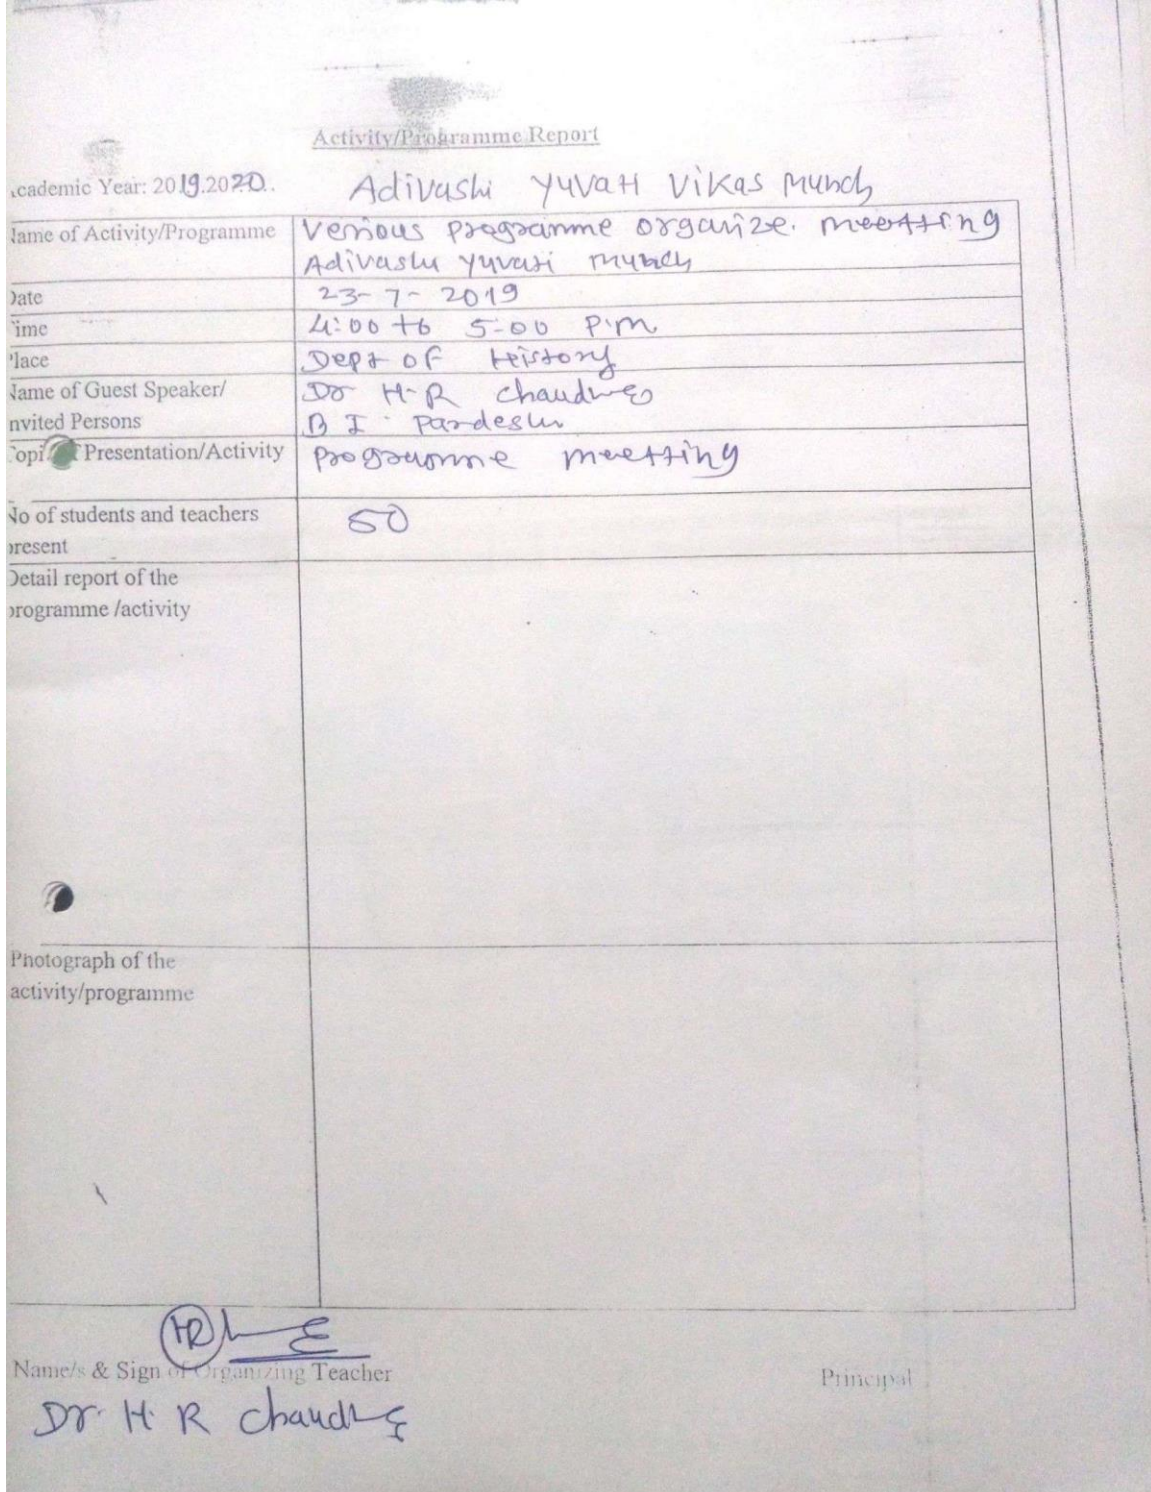 Activity/Programme Report
cademic Year: 2019.2020.. Adivashi Yuvati Vikas Munch
Name of Activity/Programme Verious programme organize. meetting
Adivashi Yuvati munch
Date 23-7-2019
Time 4:00 to 5-00 P.m
Place Dept of History
Name of Guest Speaker/ Dr H-R
nvited Persons B I. Pardeshi
Topi Presentation/Activity programme meetting
No of students and teachers 50
present
Detail report of the
programme /activity
Photograph of the
activity/programme
HR
Name/s & Sign of Organizing Teacher Principal
Dr. H. R